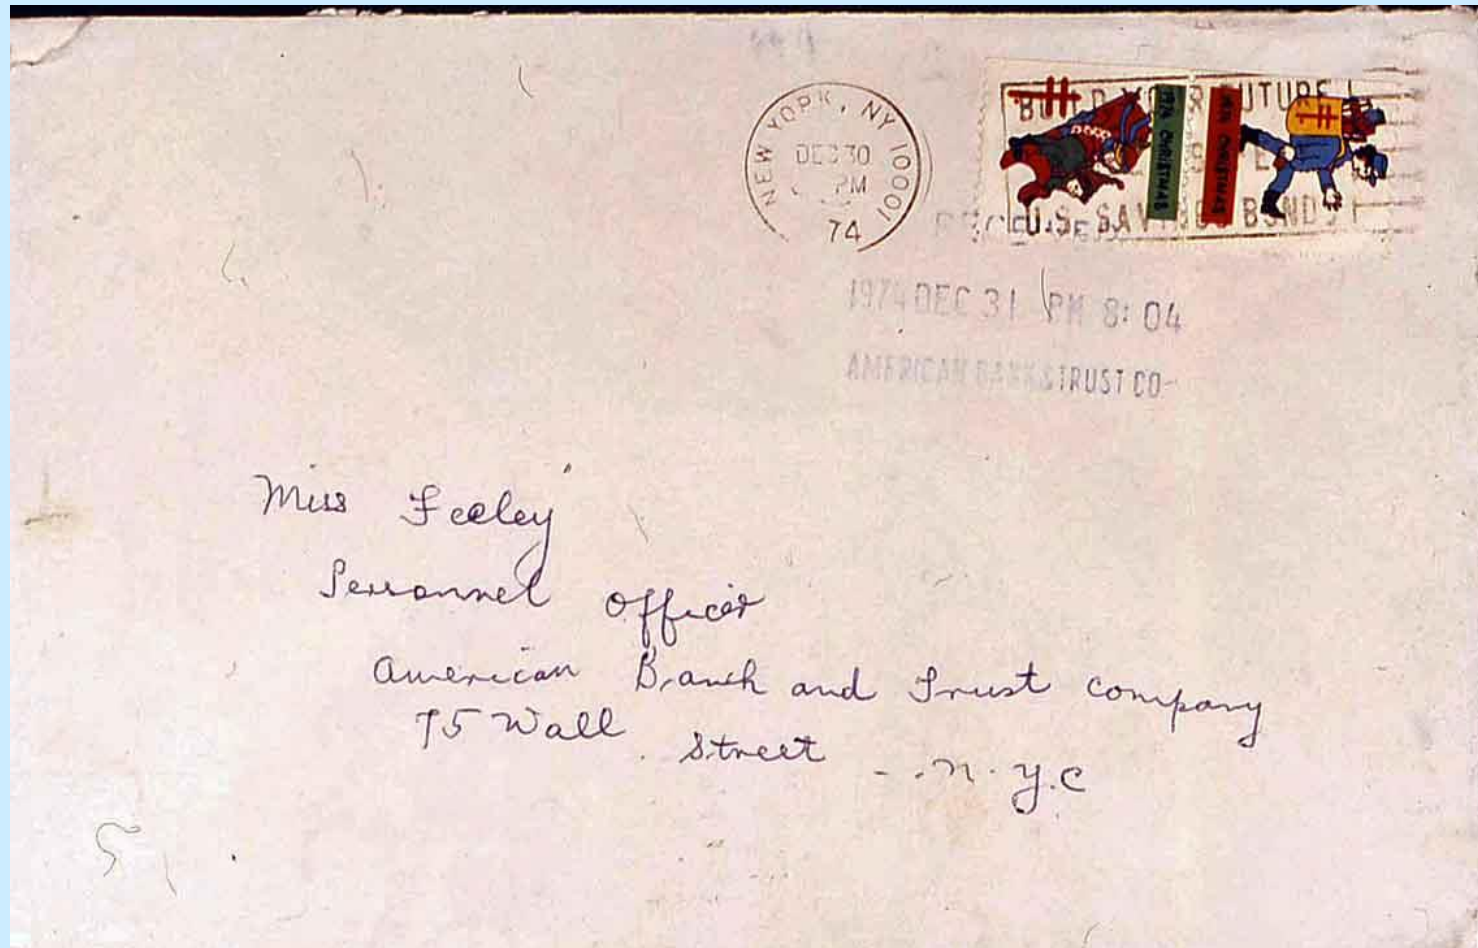 NEW YORK, NY 10001
DEC 30
PM
74
BUILD YOUR FUTURE
U.S. SAVINGS BONDS
1974 CHRISTMAS
1974 CHRISTMAS
1974 DEC 31 PM 8:04
AMERICAN BANK & TRUST CO
Miss Feeley
Personnel Officer
American Branch and Trust Company
75 Wall Street - . N.Y.C